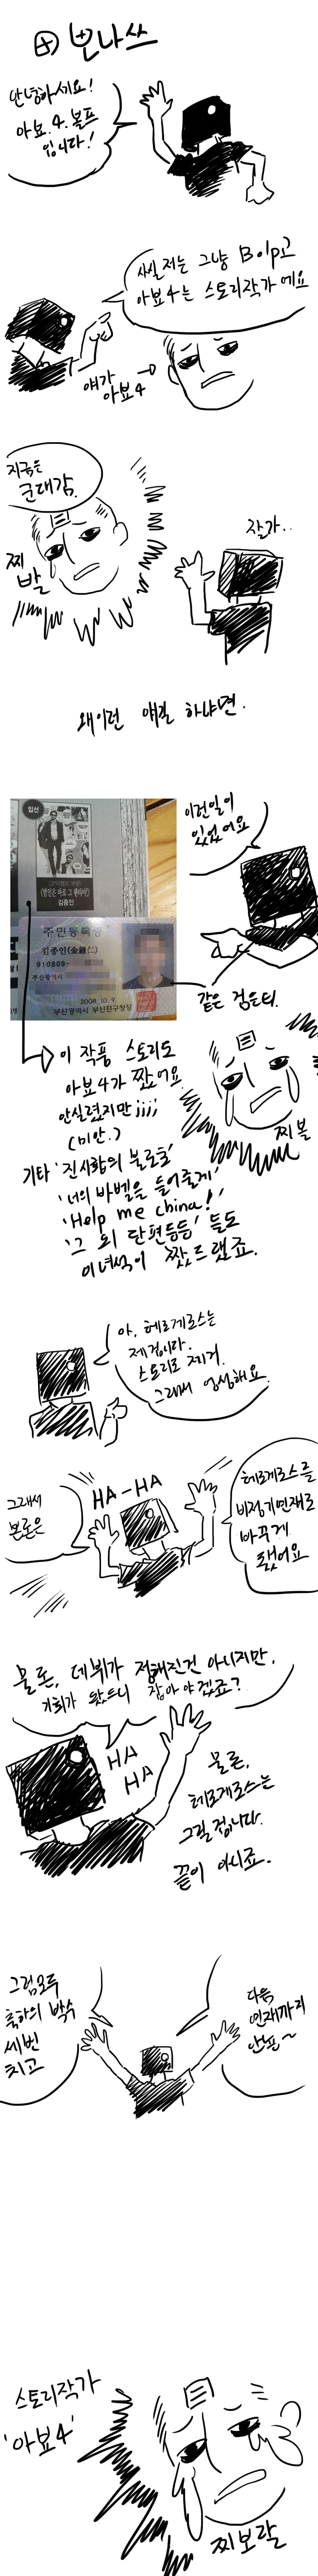 ⊕ 보나쓰
안녕하세요!
아뵤.4.볼프
입니다!
사실 저는 그냥 B이고
아뵤4는 스토리작가 예요
얘가
아뵤4
지금은
군대감.
찌
발
잘가..
왜이런 얘길 하냐면.
이런일이
있었어요
입선
〈범인은 바로 그 팬더야!〉
김종인
주민등록증
김종인(金鍾仁)
910809-
부산광역시
2008.10.9.
부산광역시 부산진구청장
같은 검은티.
이 작품 스토리도
아뵤4가 짰어요
안실렸지만;;;;
(미안.)
찌볼
기타 '진시황의 불로초'
'너의 바벨을 들어줄게'
'Help me china!'
'그 외 단편등등' 들도
이녀석이 짰드랬죠.
아, 헤르게로스는
제겁니다.
스토리로 제거.
그래서 엉성해요.
그래서
본론은
HA-HA
헤르게로스를
비정기연재로
바꾸게
됐어요
물론, 데뷔가 정해진건 아니지만,
기회가 왔으니 잡아야겠죠?
HA
HA
물론,
헤르게로스는
그릴겁니다.
끝이 아니죠.
그럼모두
축하의 박수
세번
치고
다음
연재까지
안뇽~
스토리작가
'아뵤4'
찌보랄